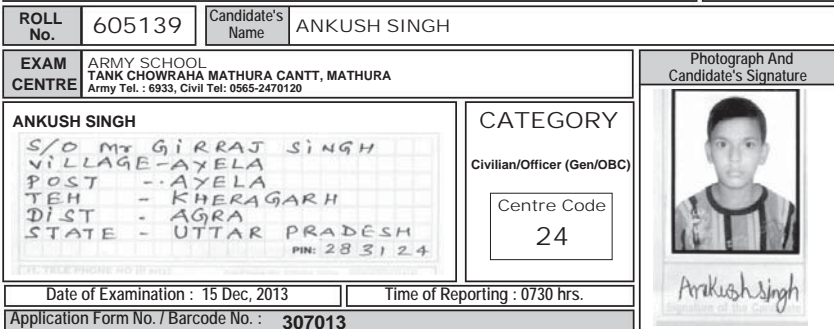 ROLL No. 605139 Candidate's Name ANKUSH SINGH
EXAM CENTRE
ARMY SCHOOL
TANK CHOWRAHA MATHURA CANTT, MATHURA
Army Tel. : 6933, Civil Tel: 0565-2470120
Photograph And
Candidate's Signature
ANKUSH SINGH
S/O Mr GiRRAJ SiNGH
ViLLAGE-AYELA
POST -.AYELA
TEH - KHERAGARH
DiST - AGRA
STATE - UTTAR PRADESH
PIN: 283124
11. TELE PHONE NO
CATEGORY
Civilian/Officer (Gen/OBC)
Centre Code
24
Ankushsingh
Signature of the Candidate
Date of Examination : 15 Dec, 2013
Time of Reporting : 0730 hrs.
Application Form No. / Barcode No. : 307013